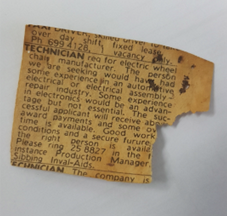 over day shift fixed lease
Ph 699 4128. vacancy
TECHNICIAN req for electric wheel
chair manufacturer. The person
we are seeking would have had
some experience in an automotive
electrical or electrical assembly
repair industry. Some experience
in electronics would be an advan-
tage but not essential. The suc-
cessful applicant will receive abo
award payments and some ov
time is available. Good work
conditions and a secure future
the right person is availa
Please ring 25 8827
instance Production Manager
Sibbing Inval-Aids.
ECHNICIAN. The company is